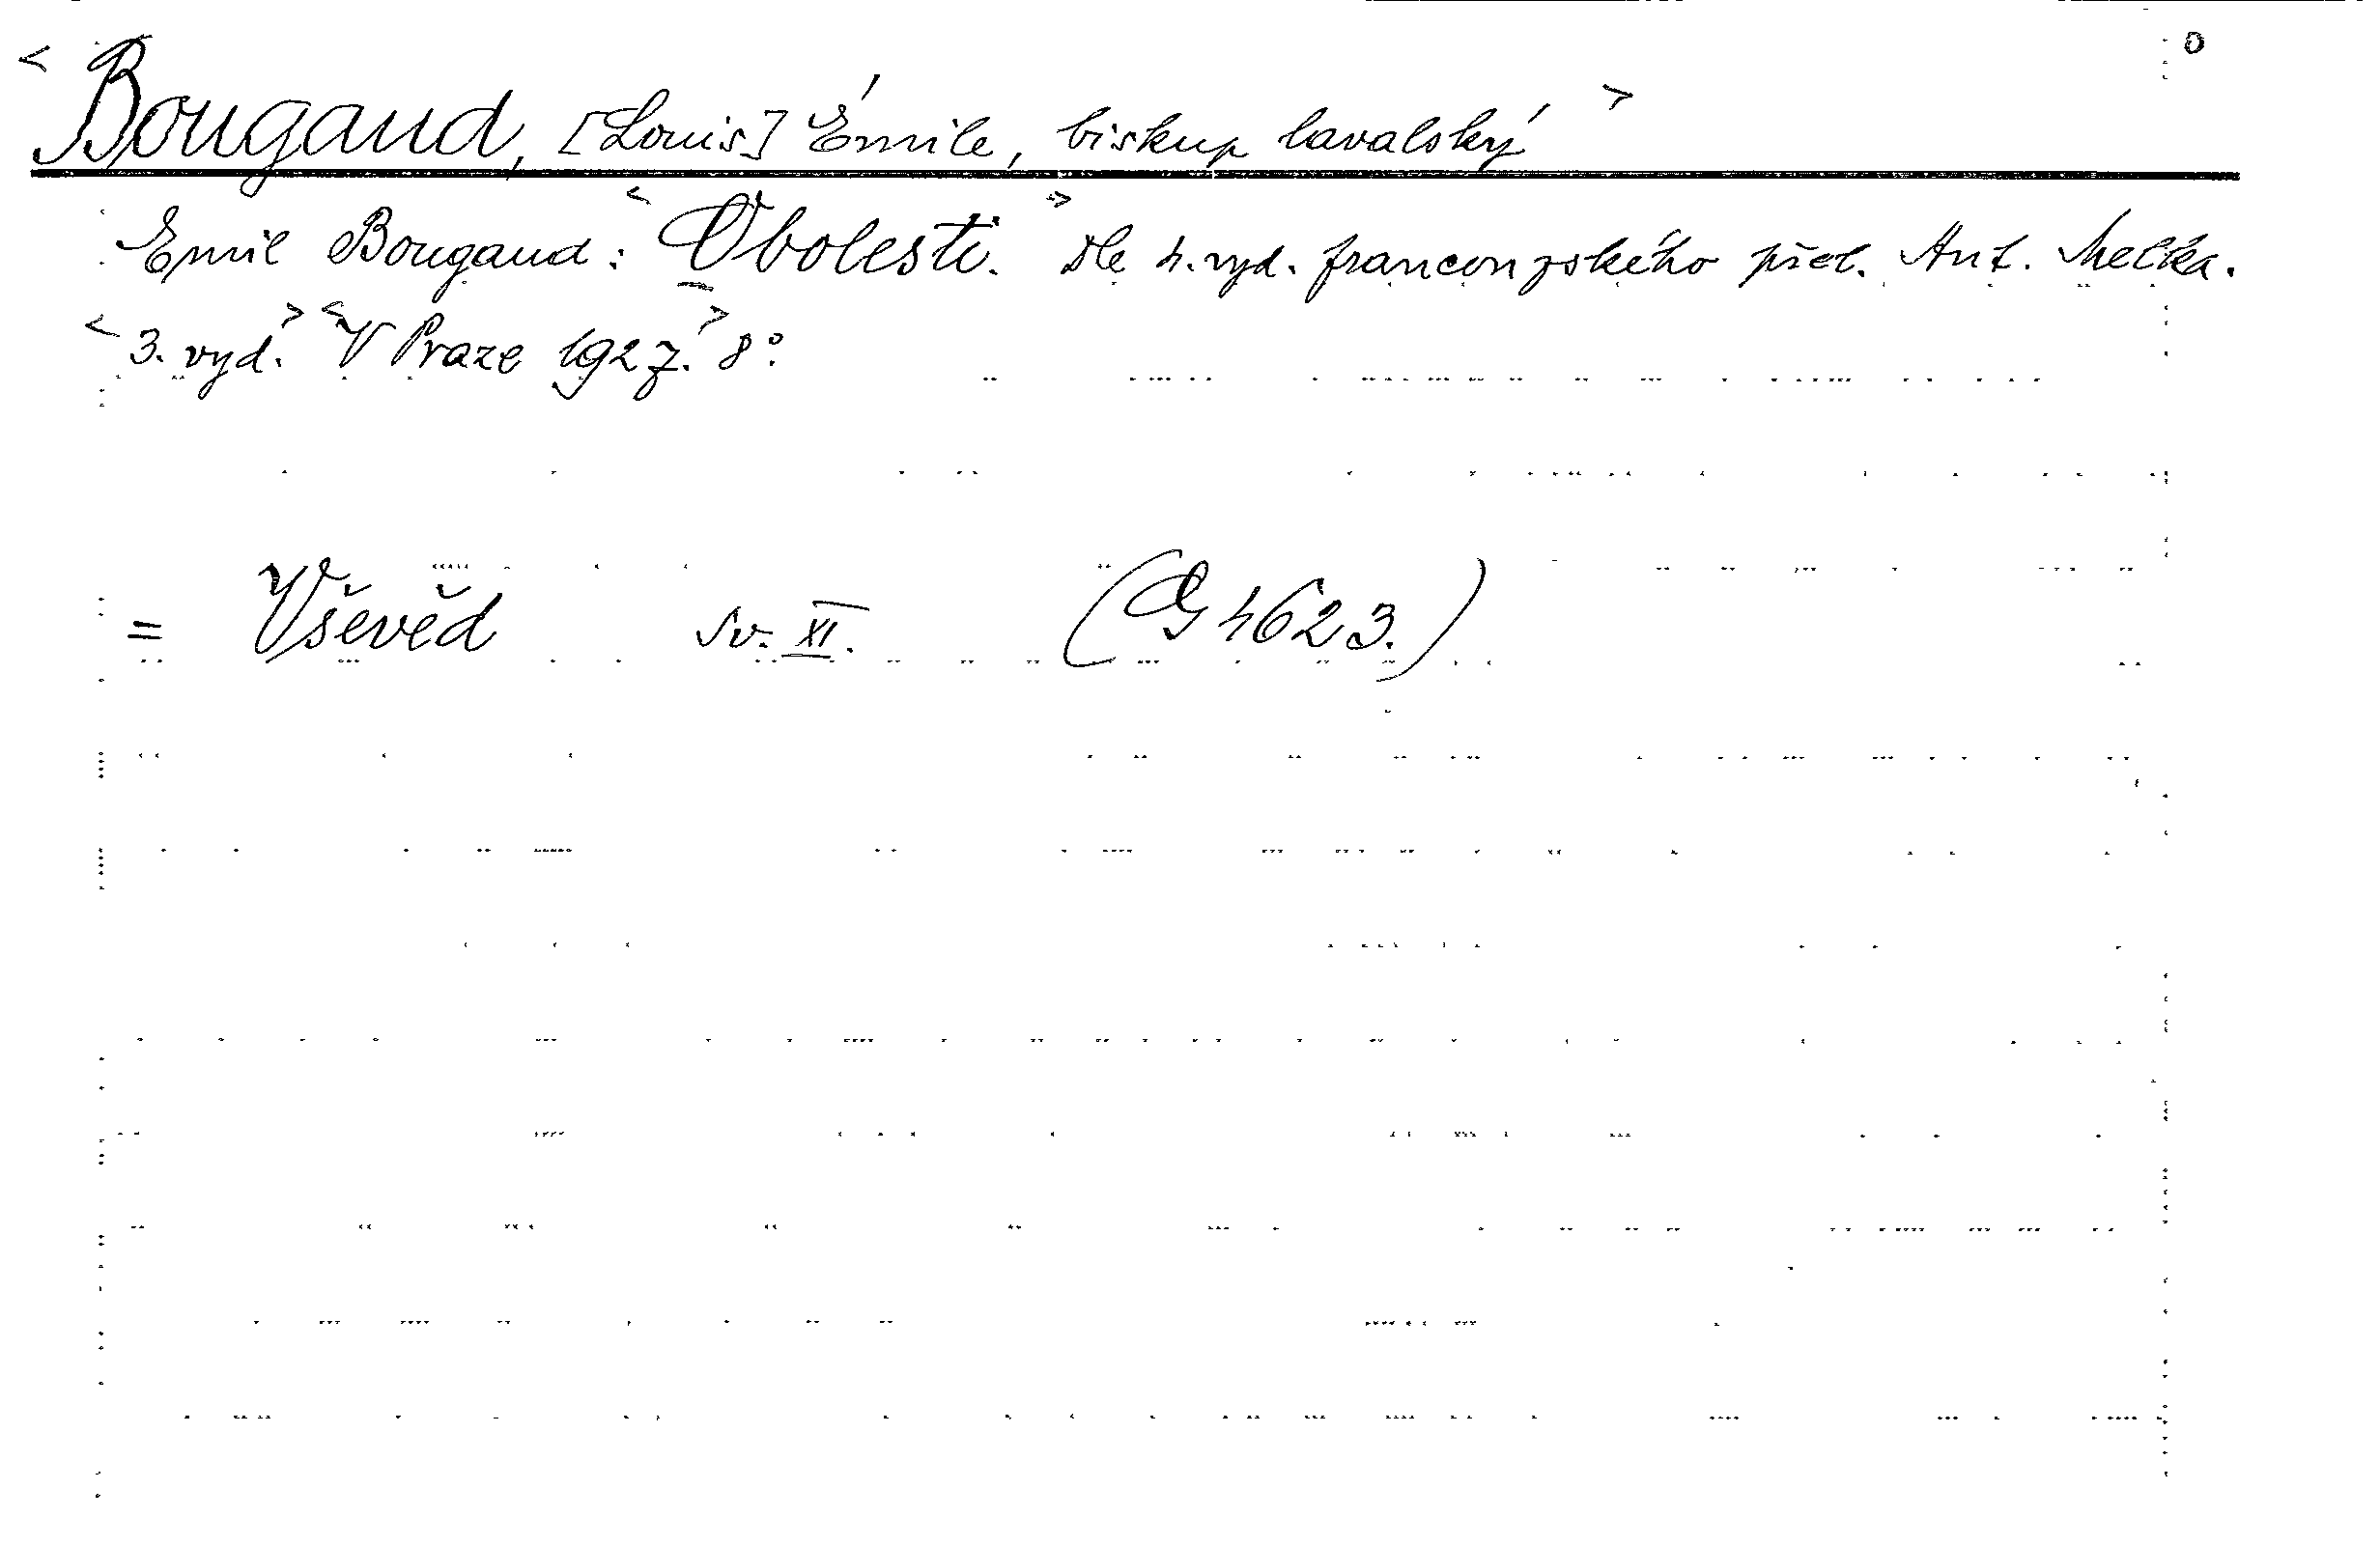 < Bougaud, [Louis] Émile, biskup lavalský > o
Emil Bougaud: <O bolesti.> Dle 4. vyd. francouzského přel. Ant. Melka.
<3. vyd.> <V Praze 1927.> 8°.
= Vševěd sv. XI. (G 4623.)